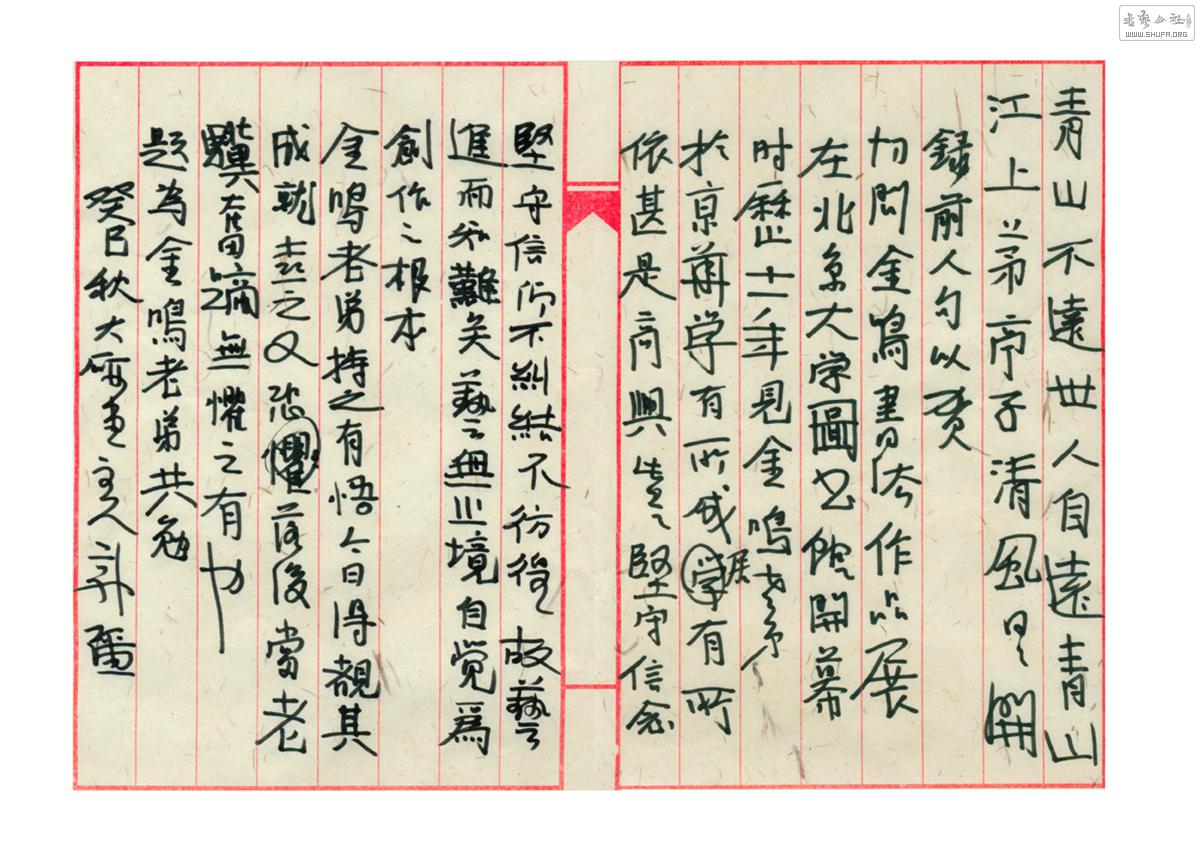 青山不遠世人自遠青山
江上第亭子清風日日開
錄前人句以贊
切聞金鳴書法作品展
在北京大学圖书館開幕
时歷十二年見金鳴老弟
於京華学有所成学展有所
依甚是高興望堅守信念
堅守信仰不糾結不彷徨故藝
進而知難矣藝無止境自覺爲
創作之根本
金鳴老弟持之有悟今日得觀其
成就喜之又恐懼落後當老
驥奮蹄無懼之有也
題為金鳴老弟共勉
癸巳秋大雨主人
書艺公社
WWW.SHUFA.ORG